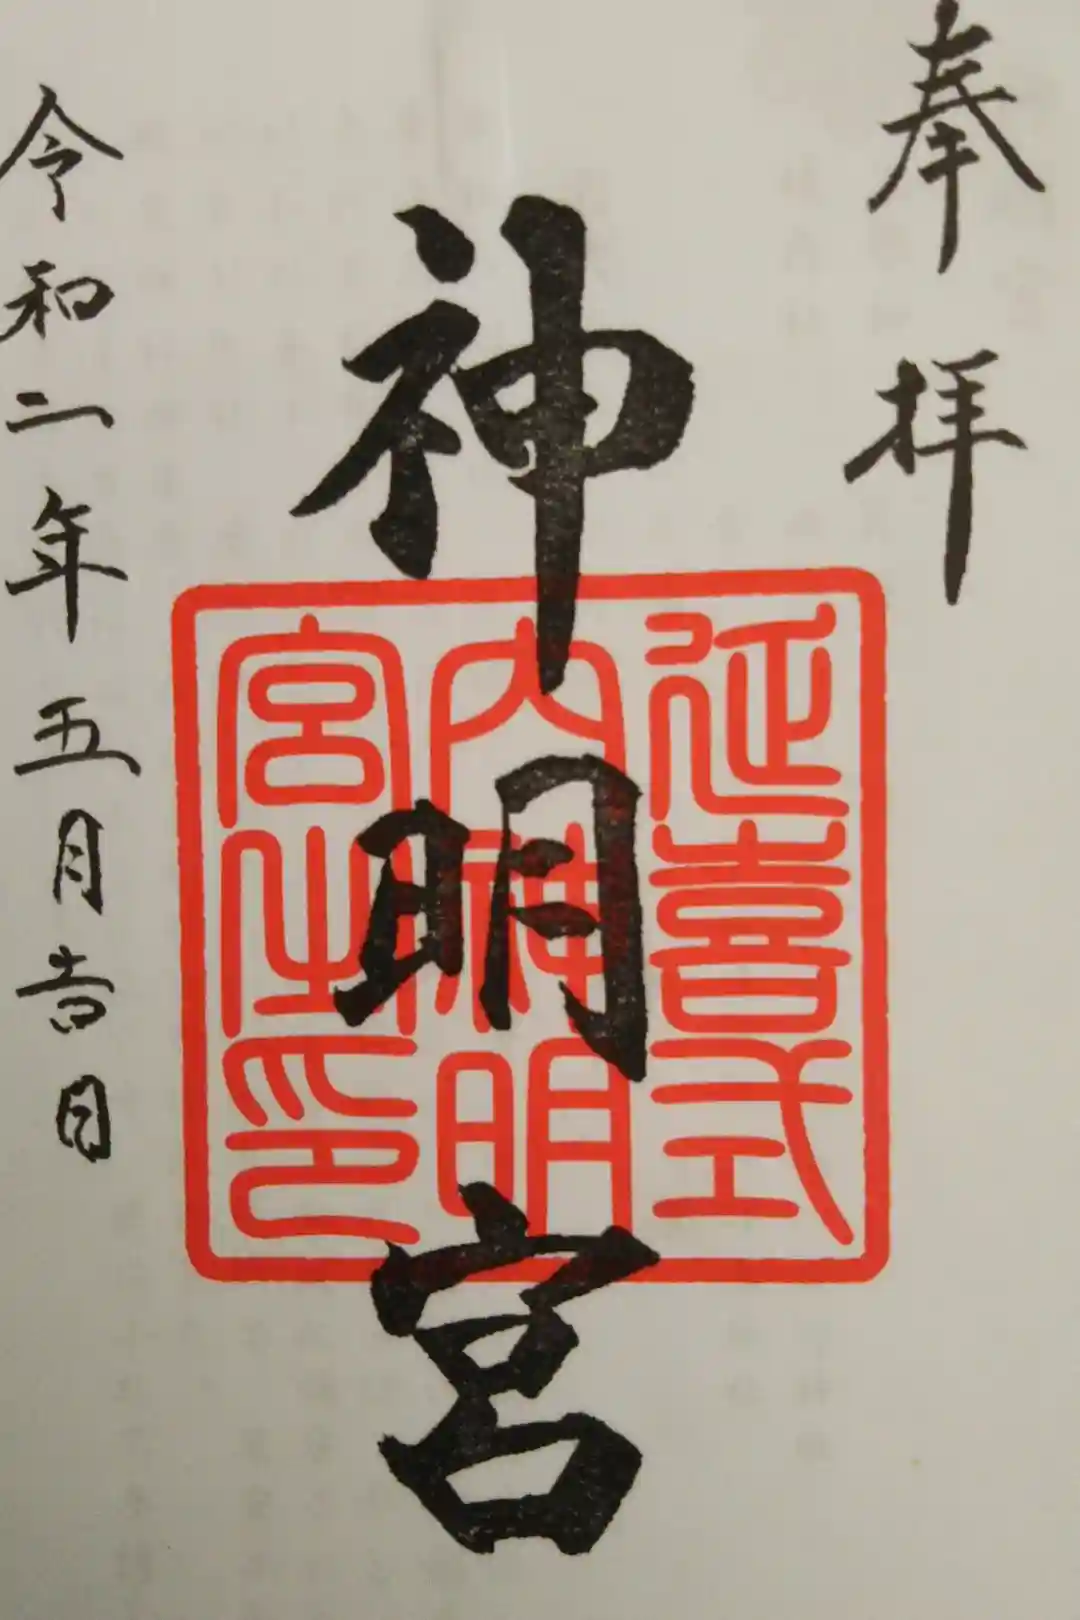 奉拝
延喜式
内神明
宮之印
神明宮
令和二年五月吉日